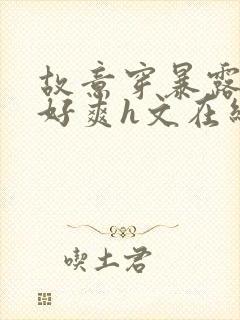 故意穿暴露
好爽h文在线
喫土君